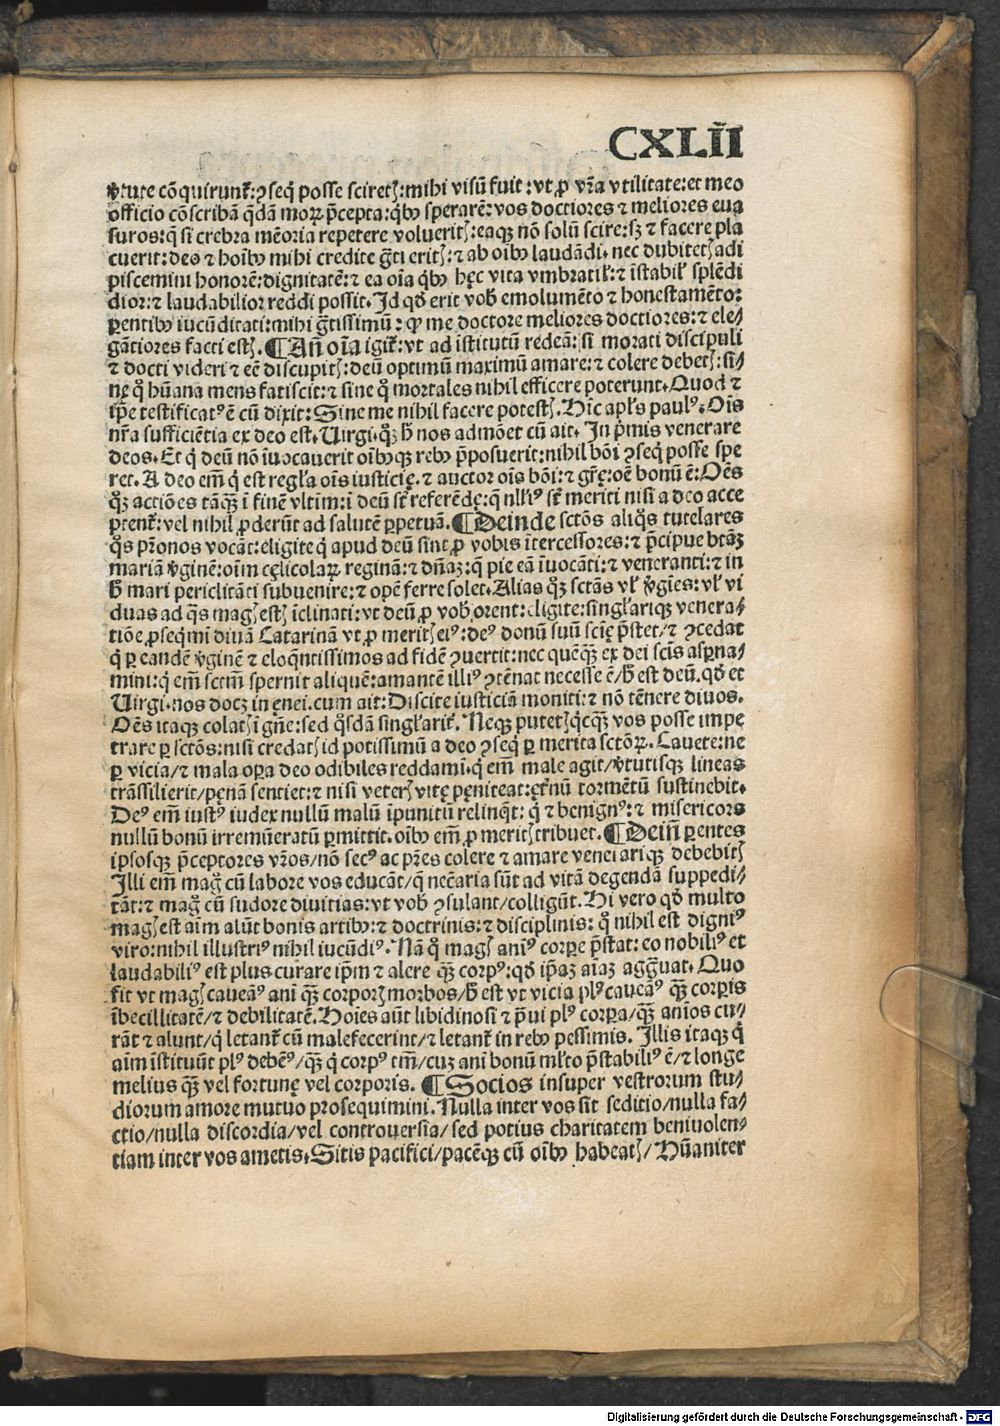 CXLII
v̄tute cōquirunt᷑: ꝯseq̄ posse sciretꝭ: mihi visū fuit: vt ꝓ vr̄a vtilitate: et meo
officio cōscribā q̄dā moꝝ p̄cepta: q̄bꝰ sperarē: vos doctiores ⁊ meliores eua
suros: q̄ si crebra mēoria repetere volueritꝭ: eaqꝫ nō solū scire: sꝫ ⁊ facere pla
cuerit: deo ⁊ hoībꝰ mihi credite g̃ti eritꝭ: ⁊ ab oībꝰ laudādi. nec dubitetꝭ adi
piscemini honorē: dignitatē: ⁊ ea oīa q̄bꝰ hęc vita vmbratil᷑: ⁊ īstabil᷑ splēdi
dior: ⁊ laudabilior reddi possit. Id qđ erit vob᷑ emolumēto ⁊ honestamēto:
ꝑentibꝰ iucūditati: mihi g̃tissimū: ꝙ me doctore meliores doctiores: ⁊ ele-
gātiores facti estꝭ. ¶ Añ oīa igit᷑: vt ad īstitutū redeā: si morati discipuli
⁊ docti videri ⁊ eē discupitꝭ: deū optimū maximū amare: ⁊ colere debetꝭ: si-
nę q̊ hūana mens fatiscit: ⁊ sine q̊ mortales nihil efficere poterunt. Quod ⁊
ip̄e testificatꝰ ē cū dixit: Sine me nihil facere potestꝭ. Hīc apl̓s paulꝰ. Oīs
nr̄a sufficiētia ex deo est. Uirgi. qꝫ h̓ nos admōet cū ait. In p̄mis venerare
deos. Et q̇ deū nō īuocauerit oībꝰqꝫ rebꝰ p̄posuerit: nihil bōi ꝯseq̄ posse spe
ret. A deo em̄ q̇ est regl̓a oīs iusticię. ⁊ auctor oīs bōi: ⁊ gr̄ę: oē bonū ē: Oēs
qꝫ actiōes tāqꝫ̄ ī finē vltim̄: ī deū sr̄ referēdę: q̄ nl̓lꝰ sr̄ meriti nisi a deo acce
ptent᷑: vel nihil ꝓderūt ad salutē ꝑpetuā. ¶ Deinde sctōs aliq̊s tutelares
q̊s pr̄onos vocāt: eligite q̇ apud deū sint ꝓ vobis ītercessores: ⁊ p̄cipue btāꝫ
mariā v̓ginē: oīm cęlicolaꝝ reginā: ⁊ dn̄aꝫ: q̄ pie eā īuocāti: ⁊ veneranti: ⁊ in
h̓ mari periclitāti subuenire: ⁊ opē ferre solet. Alias qꝫ sctās vl̓ v̓gīes: vl̓ vi
duas ad q̄s magꝭ estꝭ īclinati: vt deū ꝓ vob᷑ orent: eligite: singl̓ariqꝫ venera-
tiōe ꝓseq̄mī diuā Catarinā vt ꝓ meritꝭ eiꝰ: deꝰ donū suū scię p̄stet/ ⁊ ꝯcedat
q̇ ꝑ eandē v̓ginē ⁊ eloq̄ntissimos ad fidē ꝯuertit: nec quēqꝫ̄ ex dei scīs asꝑna-
mini: q̇ em̄ sctm̄ spernit aliquē: amantē illiꝰ ꝯtēnat necesse ē/ h̓ est deū. qđ et
Uirgi. nos docꝫ in ęnei. cum ait: Discite iusticiā moniti: ⁊ nō tēnere diuos.
Oēs itaqꝫ colatꝭ ī gn̄e: sed q̊sdā singl̓arit᷑. Neqꝫ putetꝭ q̄cqꝫ̄ vos posse impe
trare ꝑ sctōs: nisi credatꝭ id potissimū a deo ꝯseq̄ ꝑ merita sctōꝝ. Cauete: ne
ꝑ vicia/ ⁊ mala oꝑa deo odibiles reddamī. q̇ em̄ male agit/ v̓tutisqꝫ lineas
trāssilierit/ pęnā sentiet: ⁊ nisi veterꝭ vitę pęniteat: ęt̓nū tormētū sustinebit.
Deꝰ em̄ iustꝰ iudex nullū malū īpunitū relinq̄t: q̇ ⁊ benignꝰ: ⁊ misericors
nullū bonū irremūeratū ꝑmittit. oībꝰ em̄ ꝓ meritꝭ tribuet. ¶ Dein̄ ꝑentes
ipsosqꝫ p̄ceptores vr̄os/ nō secꝰ ac pr̄es colere ⁊ amare venerariqꝫ debebitꝭ
Illi em̄ mag᷑ cū labore vos educāt/ q̄ necāria sūt ad vitā degendā suppedi-
tāt: ⁊ mag᷑ cū sudore diuitias: vt vob᷑ ꝯsulant/ colligūt. Hi vero qđ multo
magꝭ est aīm alūt bonis artibꝰ: ⁊ doctrinis: ⁊ disciplinis: q̊ nihil est digniꝰ
viro: nihil illustriꝰ nihil iucūdiꝰ. Nā q̊ magꝭ aniꝰ corꝑe p̄stat: eo nobiliꝰ et
laudabiliꝰ est plus curare ip̄m ⁊ alere qꝫ̄ corpꝰ: qđ ip̄aꝫ aīaꝫ agg̃uat. Quo
fit vt magꝭ caueāꝰ ani qꝫ̄ corporꝭ morbos/ h̓ est vt vicia plꝰ caueāꝰ qꝫ̄ corꝑis
ībecillitatē/ ⁊ debilitatē. Hoīes aūt libidinosi ⁊ p̄ui plꝰ corꝑa/ qꝫ̄ anīos cu-
rāt ⁊ alunt/ q̇ letant᷑ cū malefecerint/ ⁊ letant᷑ in rebꝰ pessimis. Illis itaqꝫ q̇
aīm īstituūt plꝰ debēꝰ/ qꝫ̄ q̇ corpꝰ tm̄/ cuꝫ ani bonū ml̓to p̄stabiliꝰ ē/ ⁊ longe
melius qꝫ̄ vel fortunę vel corporis. ¶ Socios insuper vestrorum stu-
diorum amore mutuo prosequimini. Nulla inter vos sit seditio/ nulla fa-
ctio/ nulla discordia/ vel controuersia/ sed potius charitatem beniuolen-
tiam inter vos ametis. Sitis pacifici/ pacēqꝫ cū oībꝰ habeatꝭ/ Hūaniter
Digitalisierung gefördert durch die Deutsche Forschungsgemeinschaft - DFG